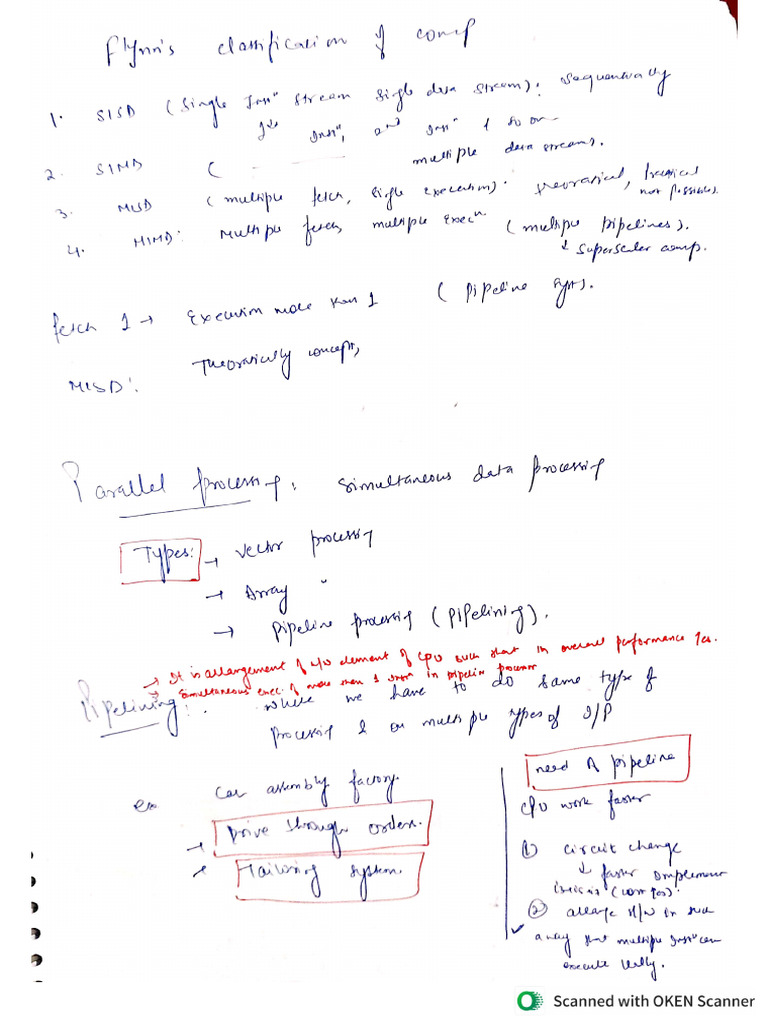 Flynn's classification of comp
1. SISD (Single Insn Stream Single data stream): Sequentially
1st Insn, 2nd Insn & so on
2. SIMD ( - ——— multiple data streams.
3. MISD (multiple fetch, single execution). theoratical, practical not possible).
4. MIMD: Multiple fetch, multiple Execn (multiple pipelines).
↓ Superscler comp.
fetch 1 → Execution more than 1 (pipeline syst).
MISD: Theoratically concept,
Parallel processing: Simultaneous data processing
Types: → Vector processing
→ Array "
→ Pipeline processing (pipelining).
→ It is arrangement of h/w element of CPU such that in overall performance ↑es.
→ Simultaneous exec of more than 1 Instn in pipeline processor
Pipelining: where we have to do same type of
processing & on multiple types of I/P
ex Car assembly factory.
→ Drive through orders.
→ Tailoring system.
need A pipeline
CPU work faster
① circuit change
↓ faster
② arrange H/w in such
a way that multiple Instn can
execute ||lly.
Scanned with OKEN Scanner